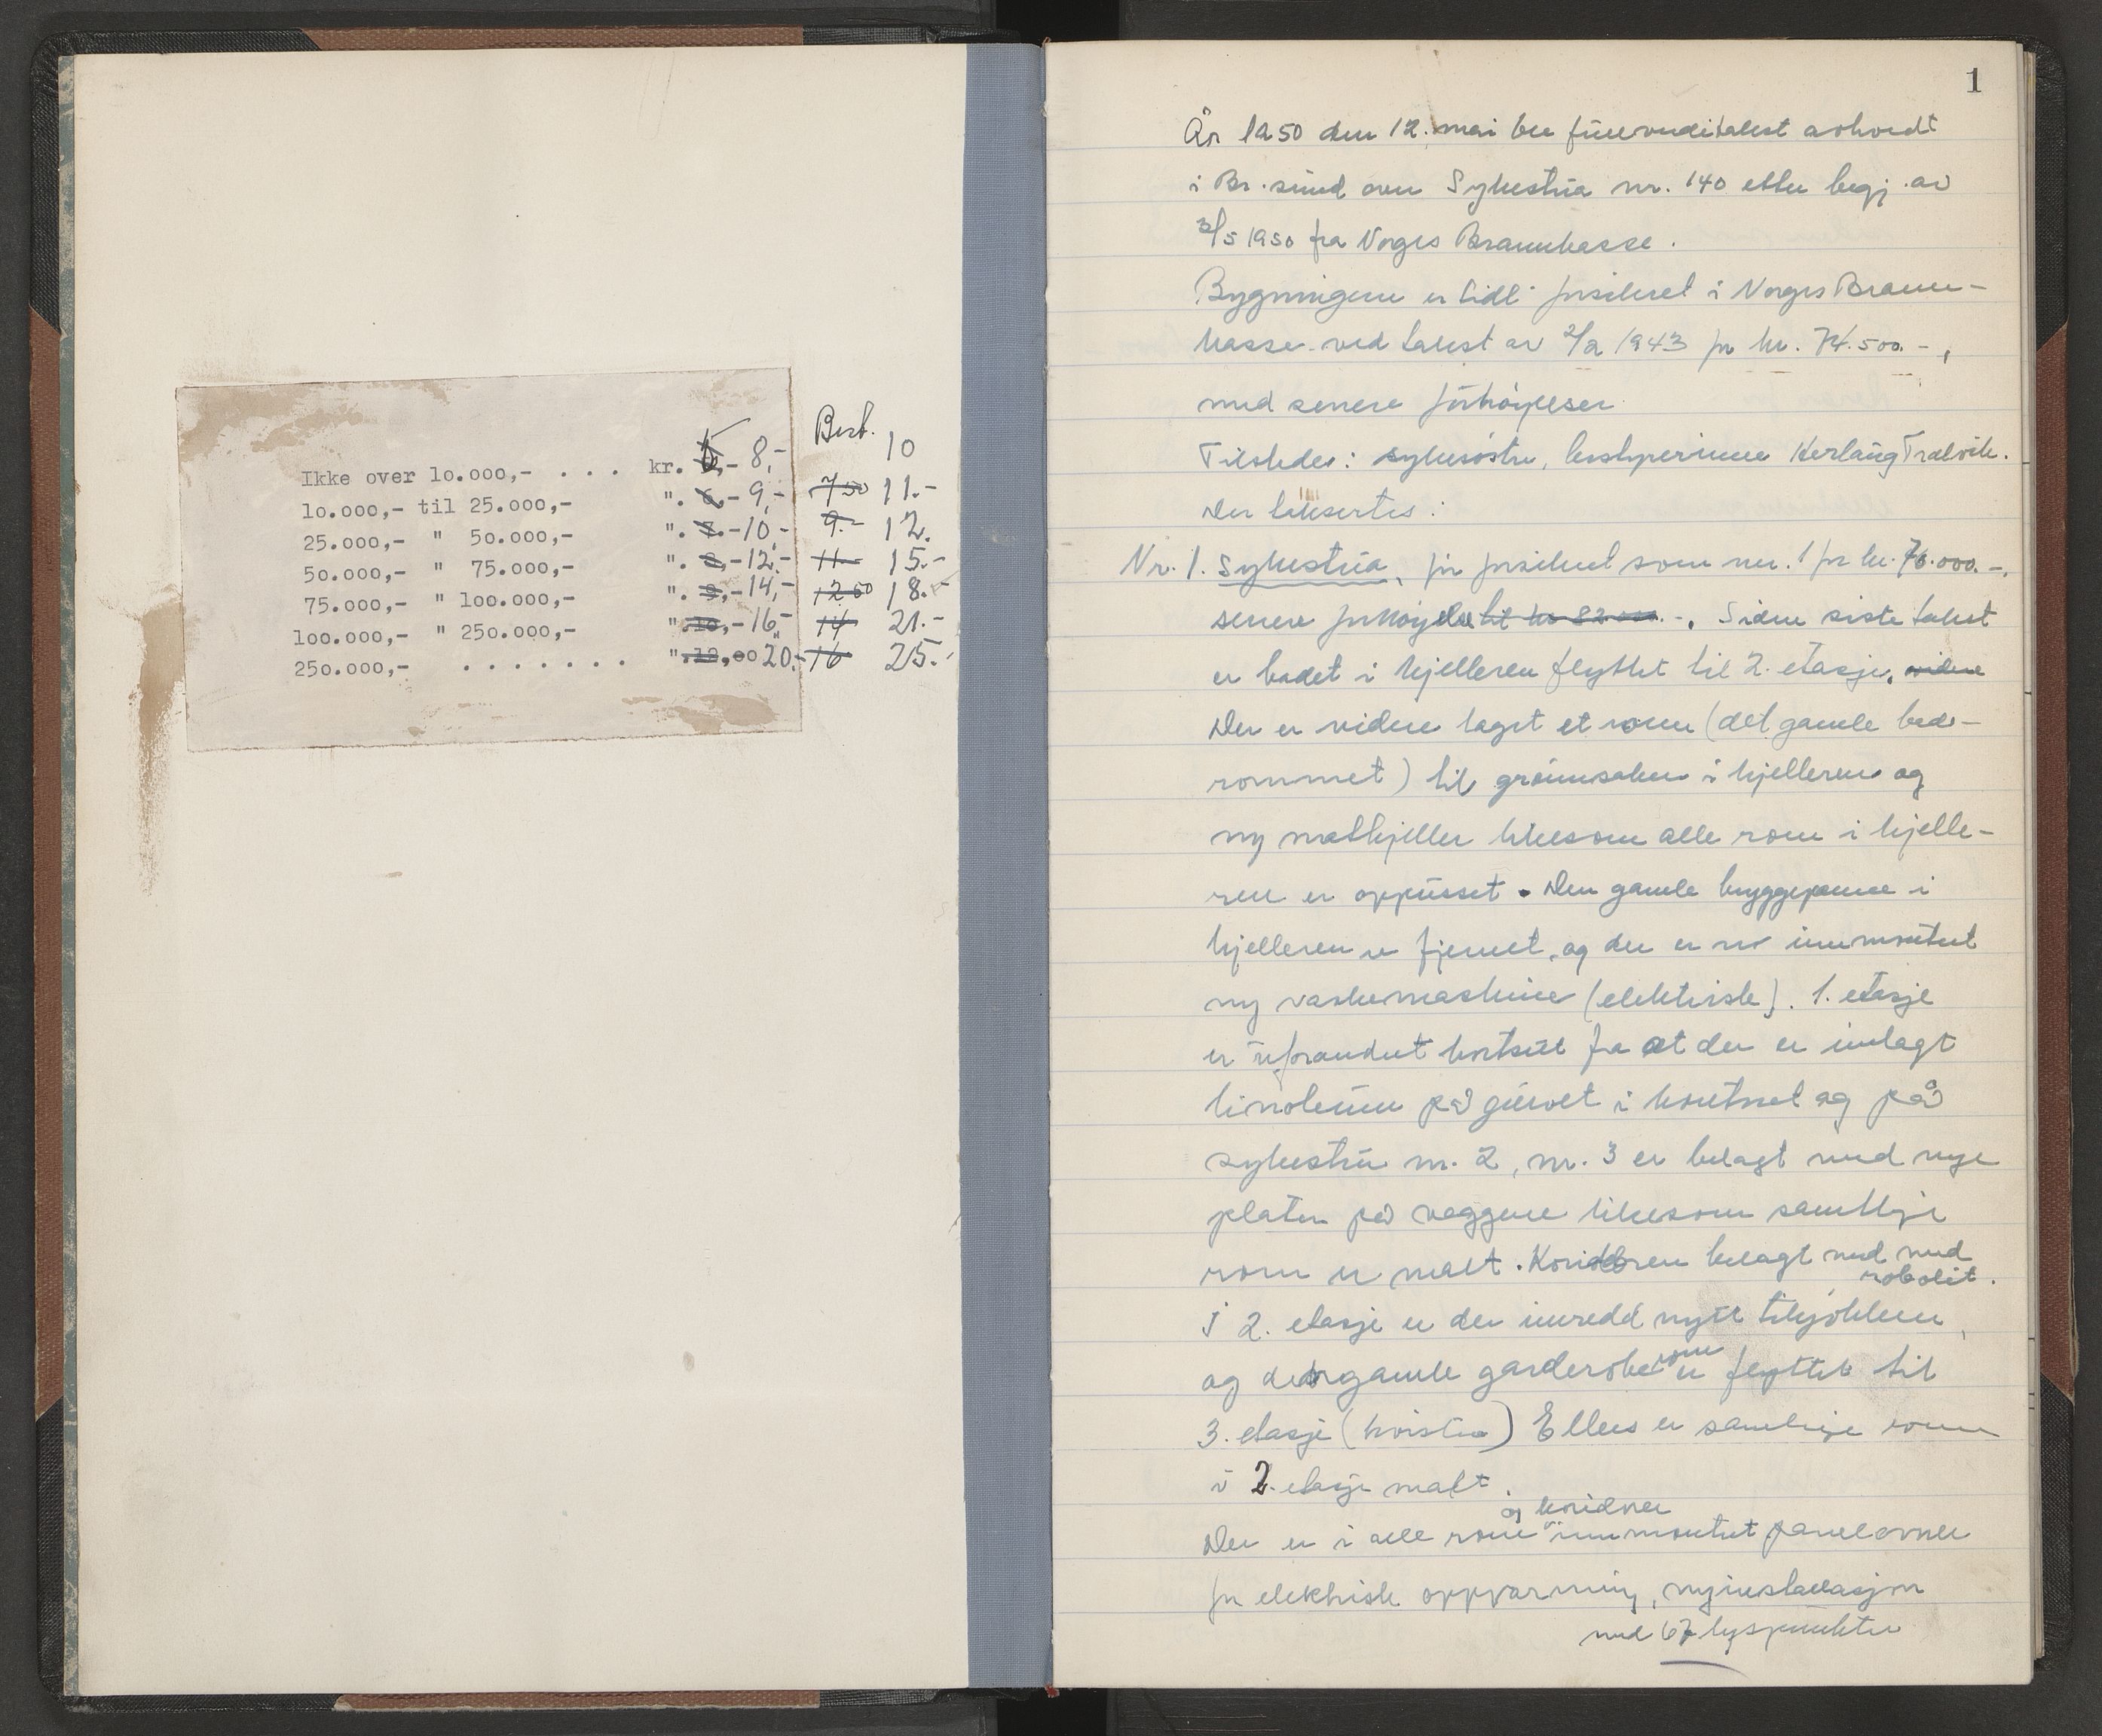 Besb.
Ikke over 10.000,- . . . kr. 5,- 8,- 10
10.000,- til 25.000,- ". 6,- 9,- 7 50 11.-
25.000,- " 50.000,- ". 7.- 10,- 9.- 12.
50.000,- " 75.000,- ". 8,- 12.- 11- 15.-
75.000,- " 100.000,- ". 9,- 14,- 12 50 18.-
100.000,- " 250.000,- ". 10,- 16,- 14 21.-
250.000,- . . . . . . . ". 12,00 20.- 16 25.-
1
År 1950 den 12. mai ble full verditakst avholdt
i Br.sund over Sykestua nr. 140 etter begj. av
3/5 1950 fra Norges Brannkasse.
Bygningene er tidl. forsikret i Norges Brann-
kasse ved takst av 2/2 1943 for kr. 74.500.-,
med senere forhøyelser
Tilstede: sykesøster, bestyrerinne Herlaug Tralvik.
Der taksertes:
Nr. 1. Sykestua, før forsikret som nr. 1 for kr. 70.000.-,
senere forhøyelse til kr 82.000.-. Siden siste takst
er badet i kjelleren flyttet til 2. etasje, videre
Der er videre laget et rom (det gamle bade-
rommet) til grønnsaker i kjelleren og
ny matkjeller likesom alle rom i kjelle-
ren er oppusset. Den gamle bryggepanne i
kjelleren er fjernet, og der er nu innmontert
ny vaskemaskine (elektrisk). 1. etasje
er uforandret bortsett fra at der er innlagt
linoleum på gulvet i kontoret og på
sykestue nr. 2, nr. 3 er belagt med nye
plater på veggene likesom samtlige
rom er malt. Koridoren belagt med med
robolit.
I 2. etasje er der innredd nytt tekjøkken,
og den gamle garderobe rom er flyttet til
3. etasje (kvistua) Ellers er samtlige rom
i 2. etasje malt.
og koridorer
Der er i alle rom innmontert panelovner
for elektrisk oppvarming, ny installasjon
med 67 lyspunkter